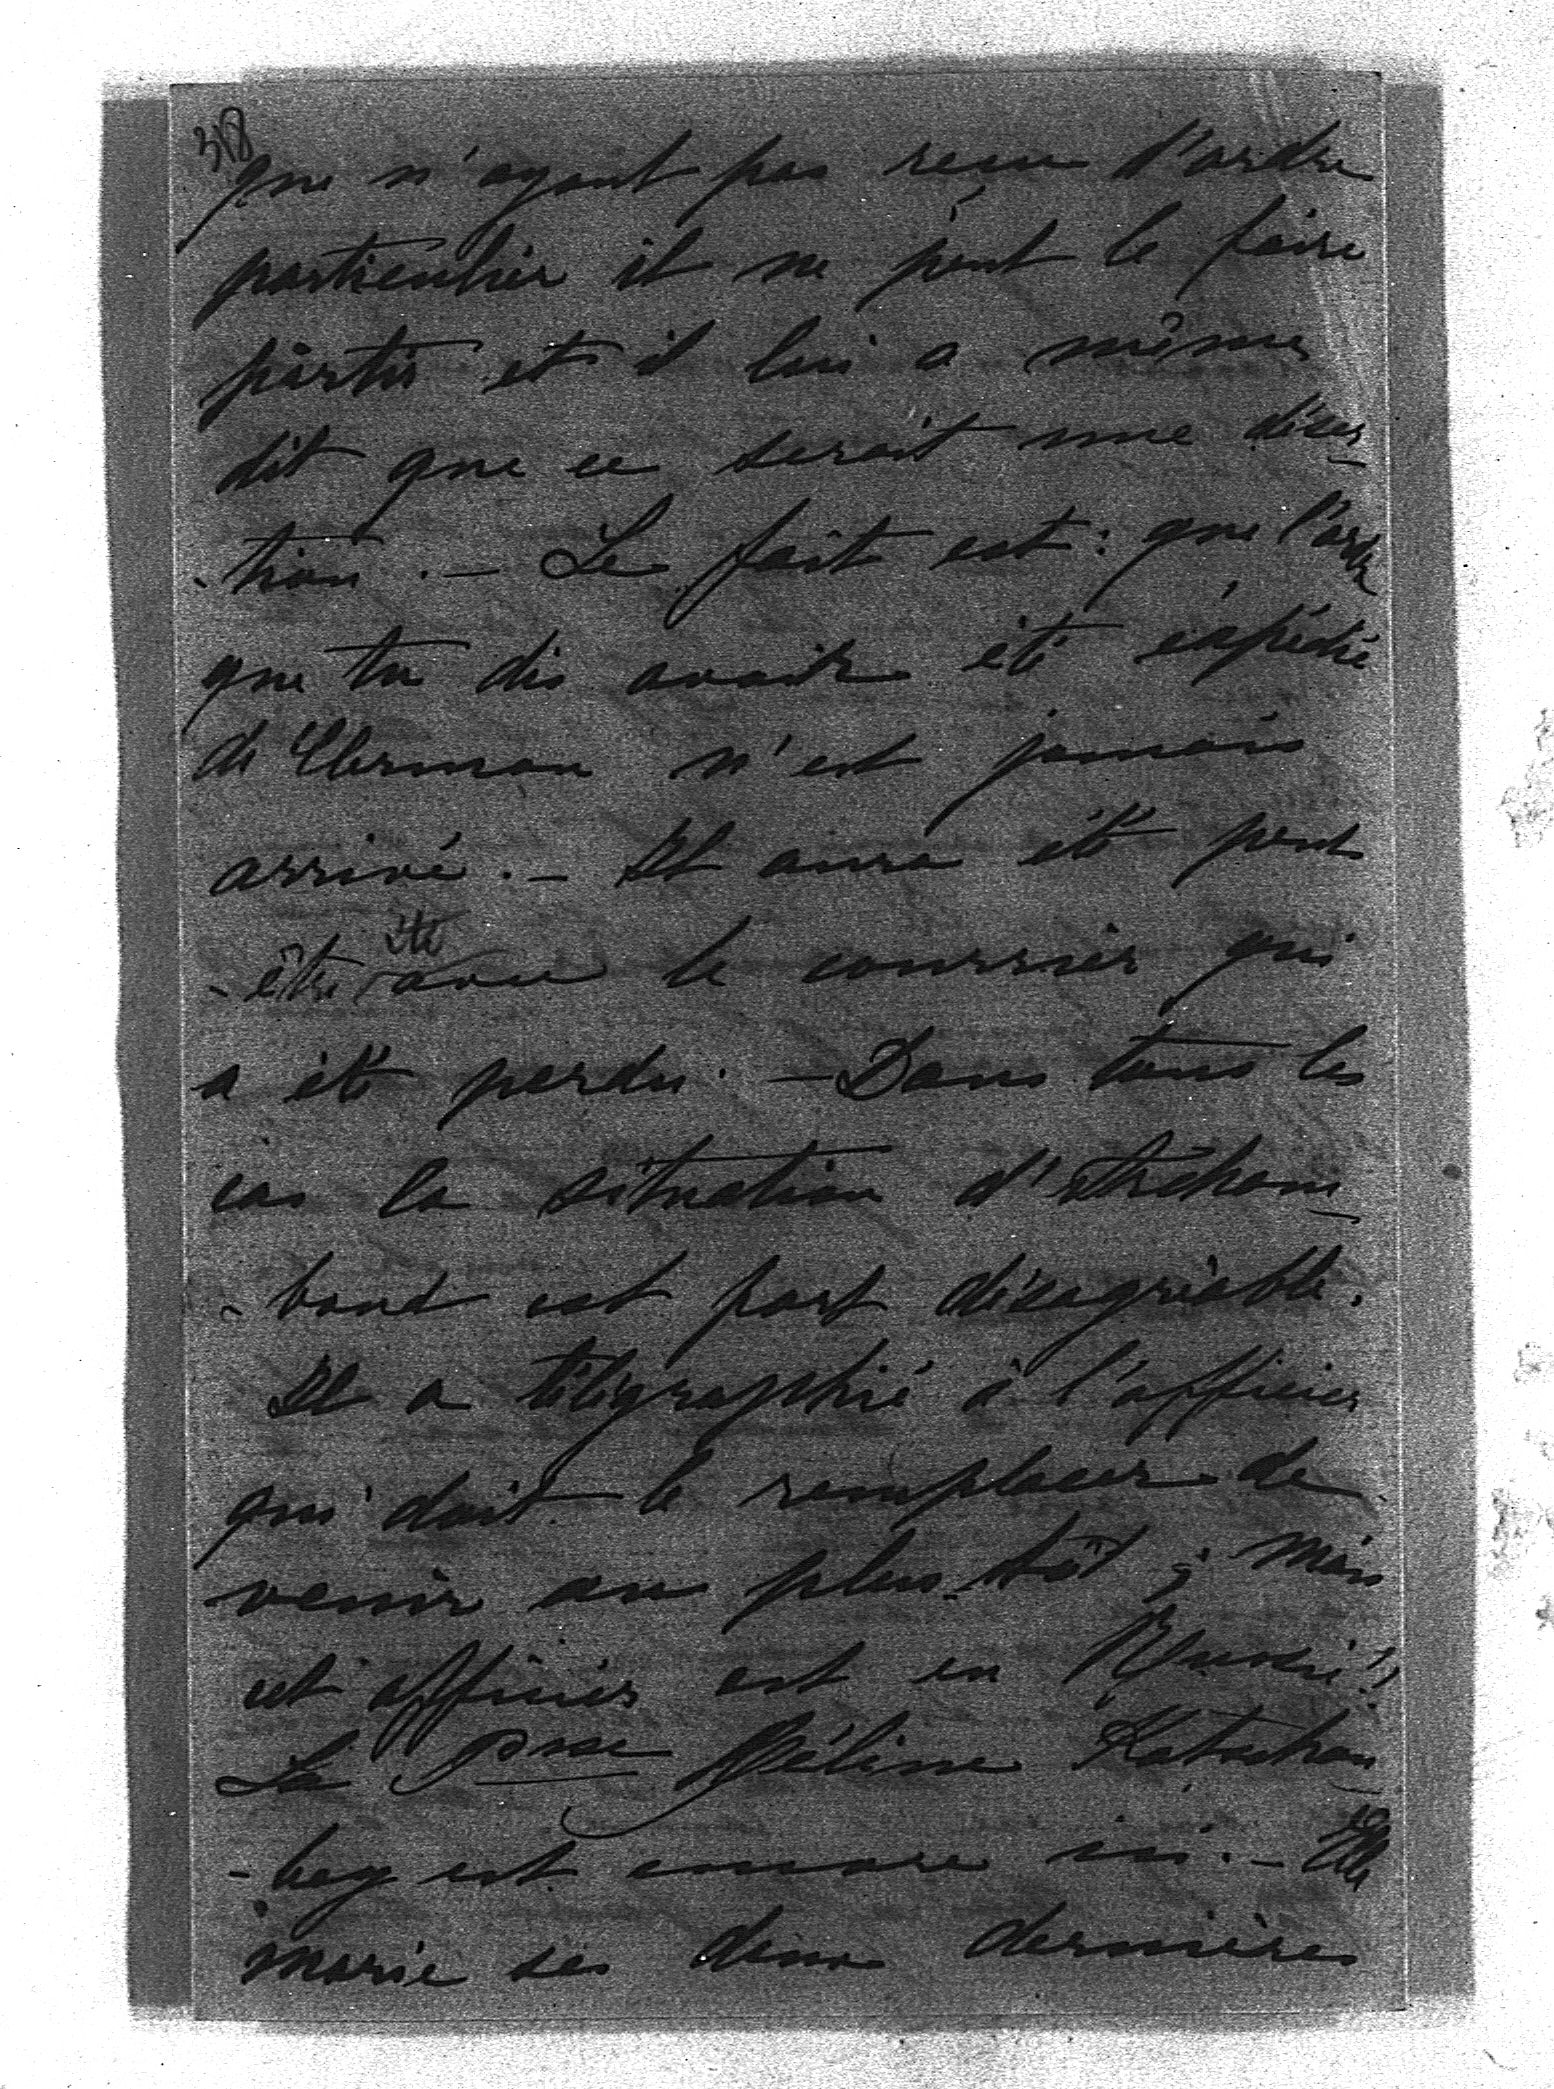 318
que n'ayant pas reçu l'ordre
particulier il ne peut le faire
partir et il lui a même
dit que ce serait une déser-
-tion. — Le fait est: que l'ordre
que tu dis avoir été expédié
de n'est jamais
arrivé. — Il aura été peut
-être été avec le courrier qui
a été perdu. — Dans tous les
cas la situation d'
-bond est fort désagréable.
Il a télégraphié à l'officier
qui doit le remplacer de
venir au plus tôt; mais
cet officier est en Russie!!
La Psse Héline Kotschou-
-bey est encore ici. — Elle
marie ses deux dernières